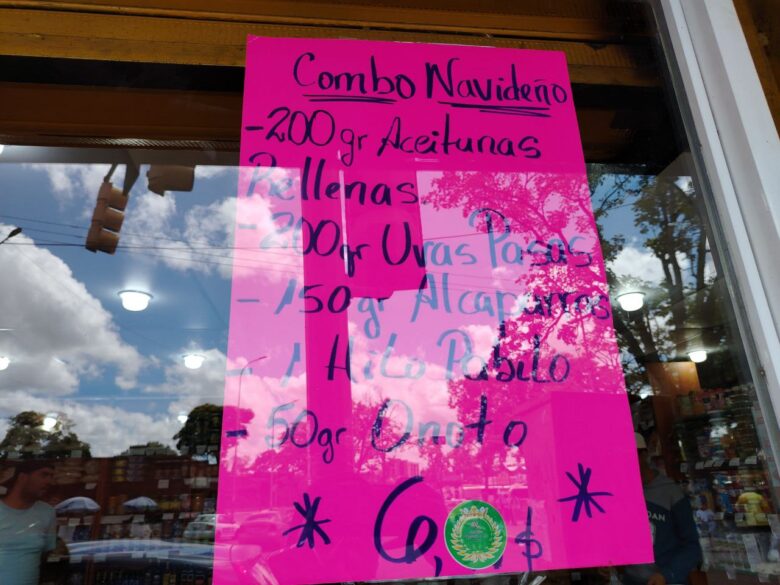 Combo Navideño
-200gr Aceitunas
Rellenas.
-200gr Uvas Pasas
- 150gr Alcaparras
- 1 Hilo Pabilo
- 50gr Onoto
* 6, $ *
DAN